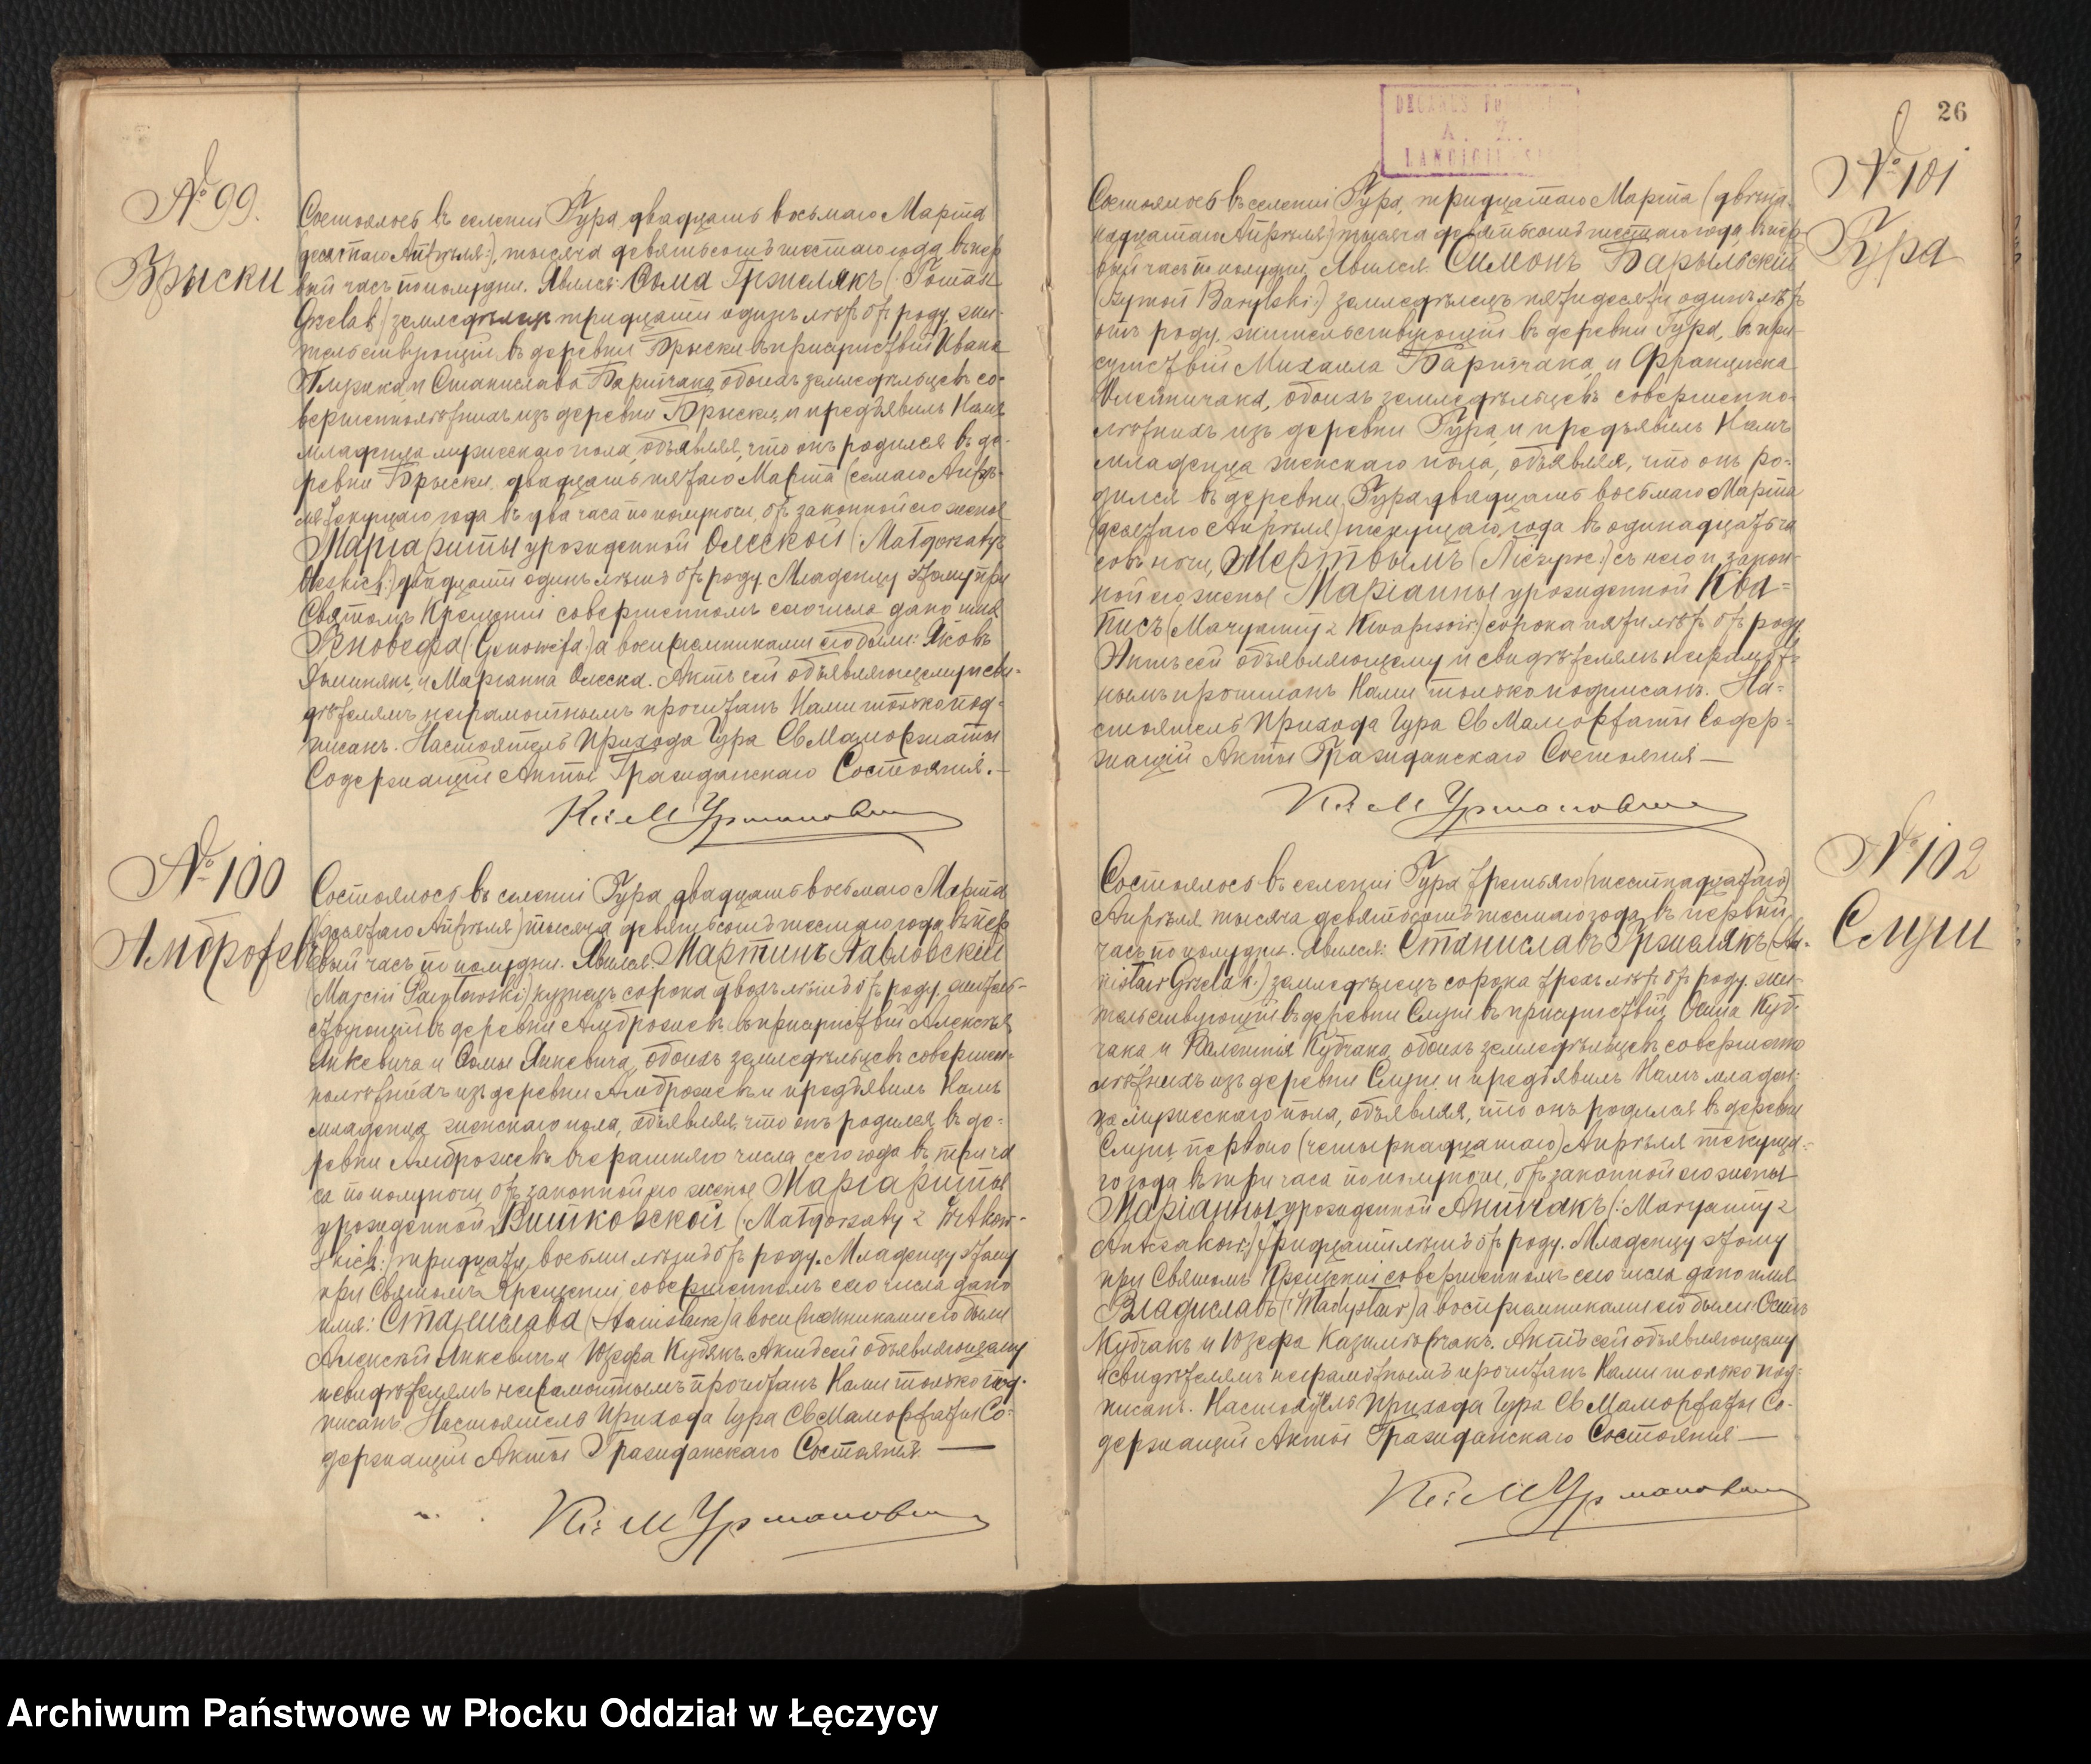 № 99.
Брыски
Состоялось въ селеніи Гура двадцать восьмаго Марта
(десятаго Апрѣля:), тысяча девятьсотъ шестаго года, въ пер
вый часъ пополудни. Явился: Ѳома Гржелякъ (: Tomasz
Grzelak:) земледѣлецъ тридцати одинъ лѣтъ отъ роду, жи-
тельствующій въ деревни Брыски въ присутствіи Ивана
и Станислава Барычака, обоихъ земледѣльцевъ со-
вершеннолѣтнихъ изъ деревни Брыски, и предъявилъ Намъ
младенца мужескаго пола, объявляя, что онъ родился въ де-
ревни Брыски, двадцать пятаго Марта (семаго Апрѣ-
ля текущаго года въ два часа по полуночи, отъ законной его жены
Маргариты урожденной Олеской (: Małgorzaty z
Oleskich:) двадцати одинъ лѣтъ отъ роду. Младенцу этому при
Святомъ Крещеніи совершенномъ сего числа дано имя
Геновефа (: Genowefa:) а воспріемниками его были: Яковъ
и Маріанна Олеска. Актъ сей объявляющему и сви-
дѣтелямъ неграмотнымъ прочитанъ Нами только под-
писанъ. Настоятель Прихода Гура Св Малгоржаты
Содержащій Акты Гражданскаго Состоянія.—
Кс: М Урмановичъ
№ 100
Амброжевъ
Состоялось въ селеніи Гура двадцать восьмаго Марта
(десятаго Апрѣля) тысяча девятьсотъ шестаго года, въ пер
вый часъ по полудни. Явился: Мартинъ Павловскій
(Marcin Pawłowski:) кузнецъ сорока двохъ лѣтъ отъ роду, житель-
ствующій въ деревни Амброжевъ въ присутствіи Алексѣя
Янкевича и Ѳомы Янкевича, обоихъ земледѣльцевъ совершен-
нолѣтнихъ изъ деревни Амброжевъ и предъявилъ Намъ
младенца женскаго пола, объявляя, что онъ родился въ де-
ревни Амброжевъ вчерашняго числа сего года въ три ча
са по полуночи, отъ законной его жены Маргариты
урожденной Витковской (: Małgorzaty z Witkow-
skich: тридцати восьми лѣтъ отъ роду. Младенцу этому
при Святомъ Крещеніи, совершенномъ сего числа дано
имя: Станислава (Stanisława) а воспріемниками его были
Алексѣй Янкевичъ и Юзефа Кубякъ. Актъ сей объявляющему
и свидѣтелямъ неграмотнымъ прочитанъ Нами только под-
писанъ. Настоятель Прихода Гура Св Малгоржаты Со-
держащій Акты Гражданскаго Состоянія. —
Кс: М Урмановичъ
26
№ 101
Гура
Состоялось въ селеніи Гура, тридцатаго Марта (двѣна-
надцатаго Апрѣля) тысяча девятьсотъ шестаго года, въ пер-
вый часъ по полудни, Явился: Симонъ Барыльскій
(Szymon Barylski:) земледѣлецъ пятидесяти одинъ лѣтъ
отъ роду, жительствующій въ деревни Гура, въ при-
сутствіи Михаила Барычака, и Францишка
Олейничака, обоихъ земледѣльцевъ совершенно-
лѣтнихъ изъ деревни Гура, и предъявилъ Намъ
младенца женскаго пола, объявляя, что онъ ро-
дился въ деревни Гура двадцать восьмаго Марта
(десятаго Апрѣля) текущаго года въ одинадцать ча
совъ ночи, Мертвымъ съ него и закон-
ной его жены Маріанны урожденной Ква-
писъ (Maryanny z Kwapisów:) сорока пяти лѣтъ отъ роду
Актъ сей объявляющему и свидѣтелямъ неграмот-
нымъ прочитанъ Нами только подписанъ. На-
стоятель Прихода Гура Св Малгоржаты Содер-
жащій Акты Гражданскаго Состоянія —
Кс М Урмановичъ
№ 102
Слуги
Состоялось въ селеніи Гура третьяго (шестнадцатаго)
Апрѣля тысяча девятьсотъ шестаго года, въ первый
часъ по полудни. Явился: Станиславъ Гржелякъ (Sta-
nisław Grzelak:) земледѣлецъ сорока трехъ лѣтъ отъ роду, жи-
тельствующій въ деревни Слуги въ присутствіи, Осипа Куб-
чака и Валентія Кубчака, обоихъ земледѣльцевъ совершенно
лѣтнихъ изъ деревни Слуги и предъявилъ Намъ младен-
ца мужескаго пола, объявляя, что онъ родился въ деревни
Слуги, перваго (четырнадцатаго) Апрѣля текуща-
го года въ три часа по полуночи, отъ законной его жены
Маріанны урожденной Антчакъ (: Maryanny z
Antczaków:) тридцати лѣтъ отъ роду. Младенцу этому
при Святомъ Крещеніи совершенномъ сего числа дано имя
Владиславъ (: Władysław) а воспріемниками его были: Осипъ
Кубчакъ и Юзефа Казимѣрчакъ. Актъ сей объявляющему
и свидѣтелямъ неграмотнымъ прочитанъ Нами только под-
писанъ. Настоятель Прихода Гура Св Малгоржаты Со-
держащій Акты Гражданскаго Состоянія —
Кс: М Урмановичъ
Archiwum Państwowe w Płocku Oddział w Łęczycy